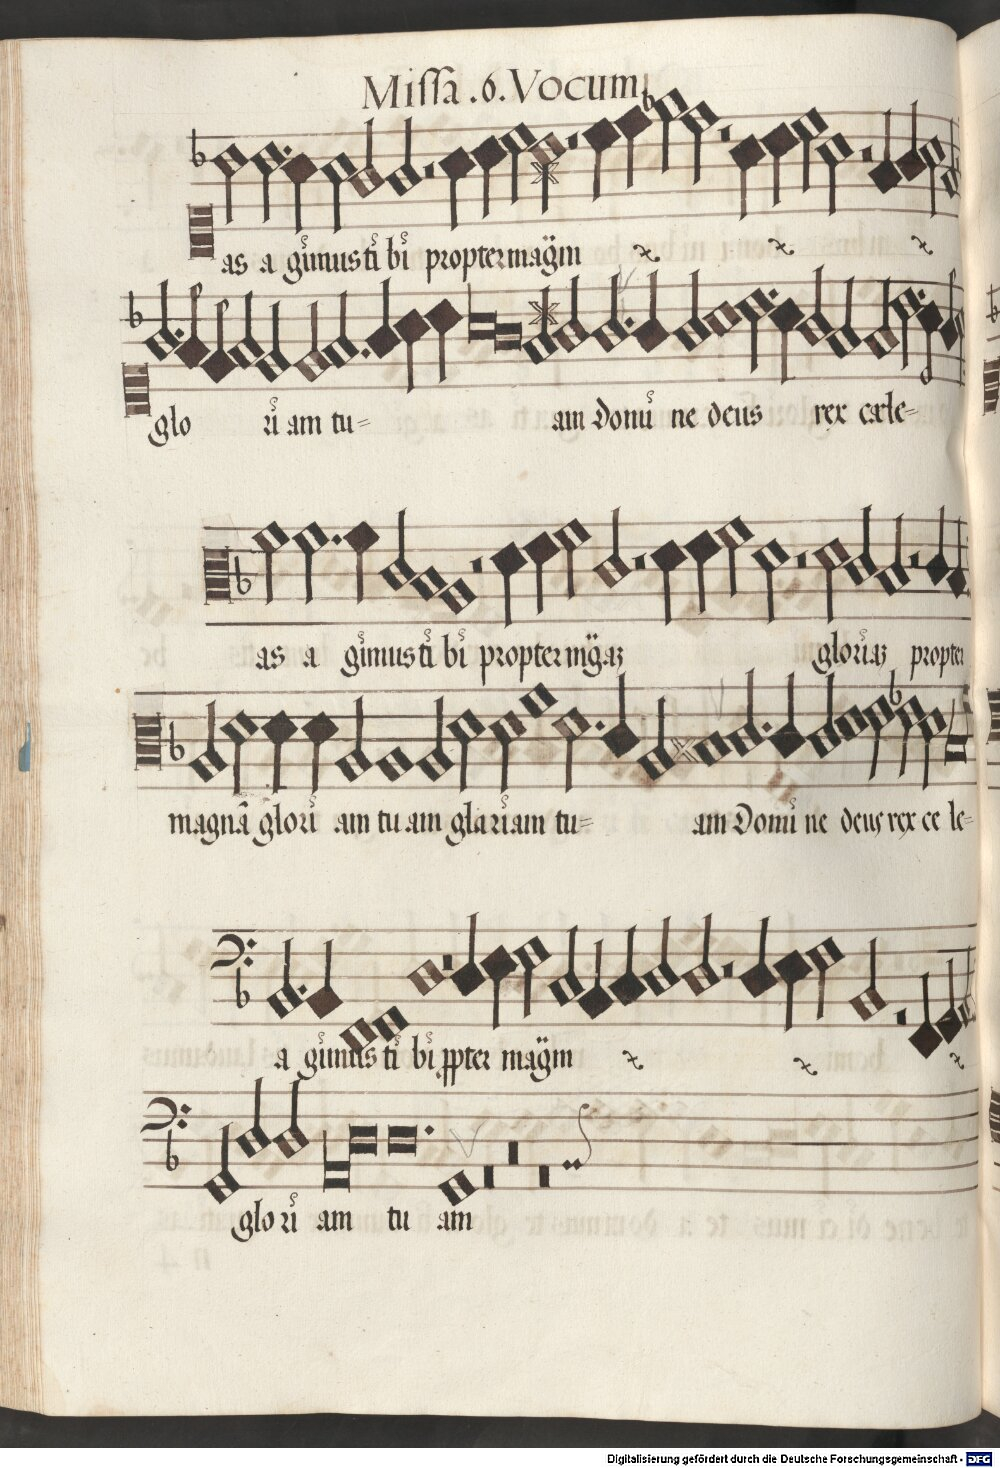 Missa .6. Vocum
as a gimus ti bi propter magm
glo ri am tu= am Domi ne deus rex cæle=
as a gimus ti bi propter mgaz gloriaz propter
magnā glori am tu am glariam tu= am Domi ne deus rex ce le=
a gimus ti bi ppter magm
glo ri am tu am
Digitalisierung gefördert durch die Deutsche Forschungsgemeinschaft - DFG